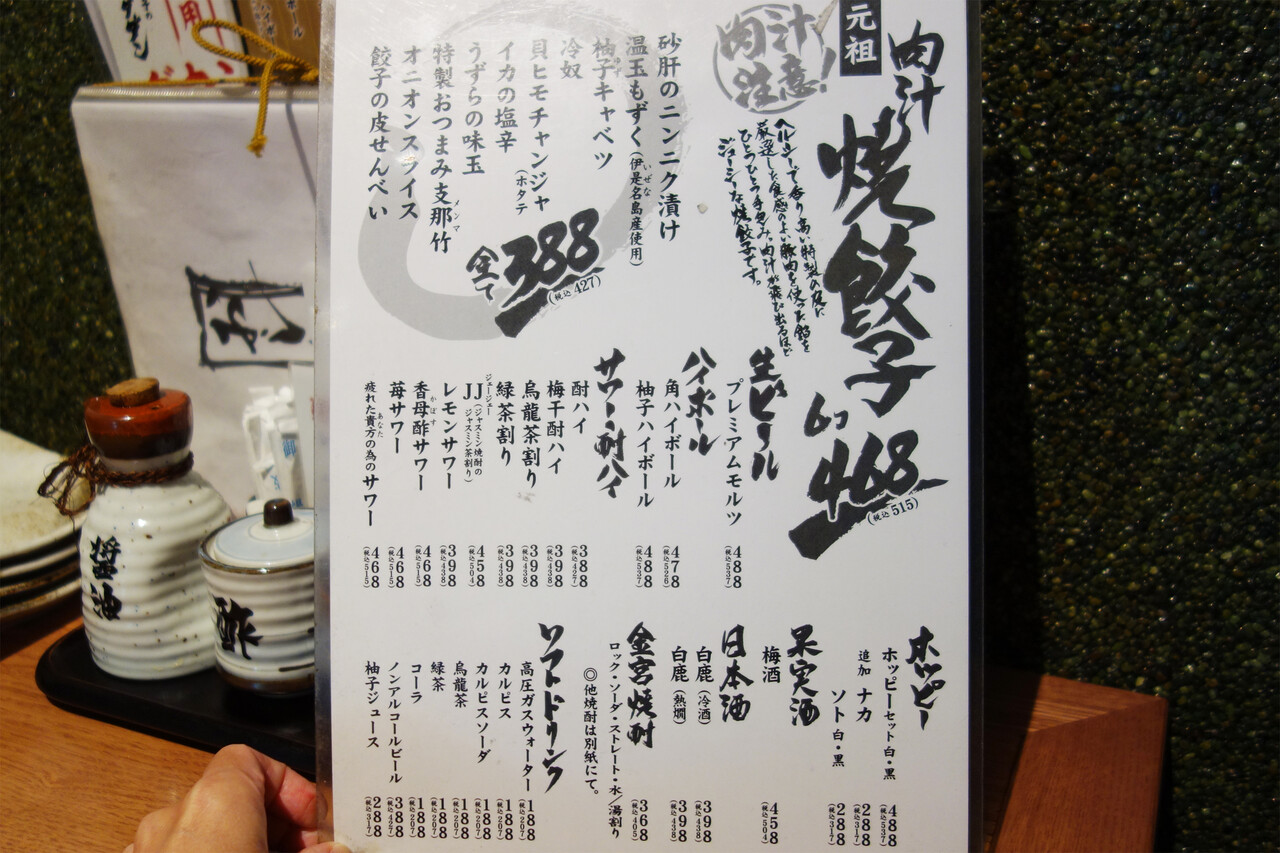 元祖
肉汁
焼餃子
6コ 468
(税込 515)
肉汁
注意!
ヘルシーで香り高い特製の皮に
厳選した食感のよい豚肉を使った餡を
ひとつひとつ手包み。肉汁が飛び出るほど
ジューシーな焼餃子です。
砂肝のニンニク漬け
温玉もずく(伊是名島産使用)
いぜな
柚子キャベツ
冷奴
貝ヒモチャンジャ
(ホタテ
イカの塩辛
うずらの味玉
特製おつまみ支那竹
メンマ
オニオンスライス
餃子の皮せんべい
全て388
(税込 427)
生ビール
プレミアムモルツ 488 (税込537)
ハイボール
角ハイボール 478 (税込526)
柚子ハイボール 488 (税込537)
サワー・酎ハイ
酎ハイ 388 (税込427)
梅干酎ハイ 398 (税込438)
烏龍茶割り 398 (税込438)
緑茶割り 398 (税込438)
ジェージェー
JJ(ジャスミン焼酎のジャスミン茶割り) 458 (税込504)
レモンサワー 398 (税込438)
かぼす
香母酢サワー 468 (税込515)
苺サワー 468 (税込515)
あなた
疲れた貴方の為のサワー 468 (税込515)
ホッピー
ホッピーセット 白・黒 488 (税込537)
追加 ナカ 288 (税込317)
ソト 白・黒 288 (税込317)
果実酒
梅酒 458 (税込504)
日本酒
白鹿(冷酒) 398 (税込438)
白鹿(熱燗) 398 (税込438)
金宮焼酎
ロック・ソーダ・ストレート・水/湯割り 368 (税込405)
◎他焼酎は別紙にて。
ソフトドリンク
高圧ガスウォーター 188 (税込207)
カルピス 188 (税込207)
カルピスソーダ 188 (税込207)
烏龍茶 188 (税込207)
緑茶 188 (税込207)
コーラ 188 (税込207)
ノンアルコールビール 388 (税込427)
柚子ジュース 288 (税込317)
醤油
酢